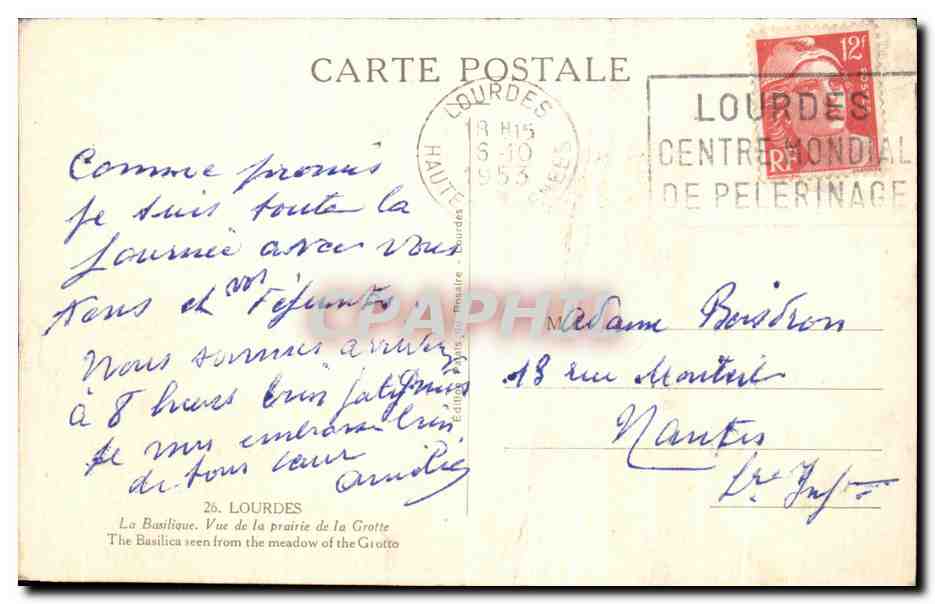 CARTE POSTALE
12F
RF
LOURDES
18 H15
6-10
1953
HAUTES PYRENEES
LOURDES
CENTRE MONDIAL
DE PELERINAGE
Comme promis
je suis toute la
journée avec vous
tous et vos défunts.
Nous sommes arrivées
à 8 heures bien fatiguées
Je vous embrasse bien
de tout cœur
Amélie
Madame Boisdron
13 rue Monteil
Nantes
Lre Infre
Edition Palais du Rosaire - Lourdes
CPAPHIL
26. LOURDES
La Basilique. Vue de la prairie de la Grotte
The Basilica seen from the meadow of the Grotto